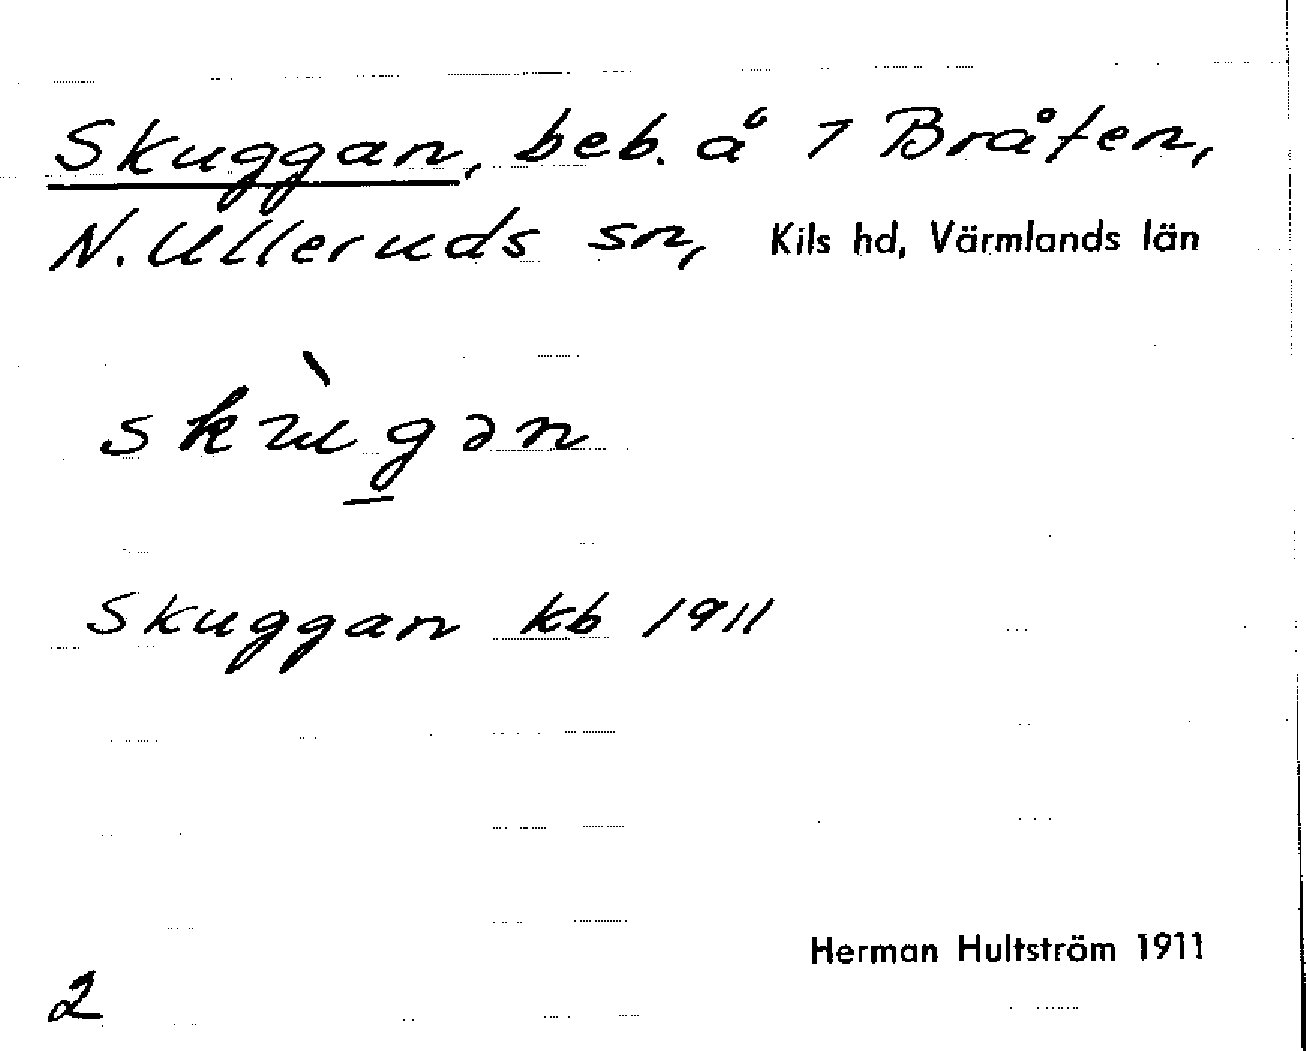 Skuggan, beb. å 1 Bråten,
N. Ulleruds sn, Kils hd, Värmlands län
skùgən
Skuggan kb 1911
Herman Hultström 1911
2